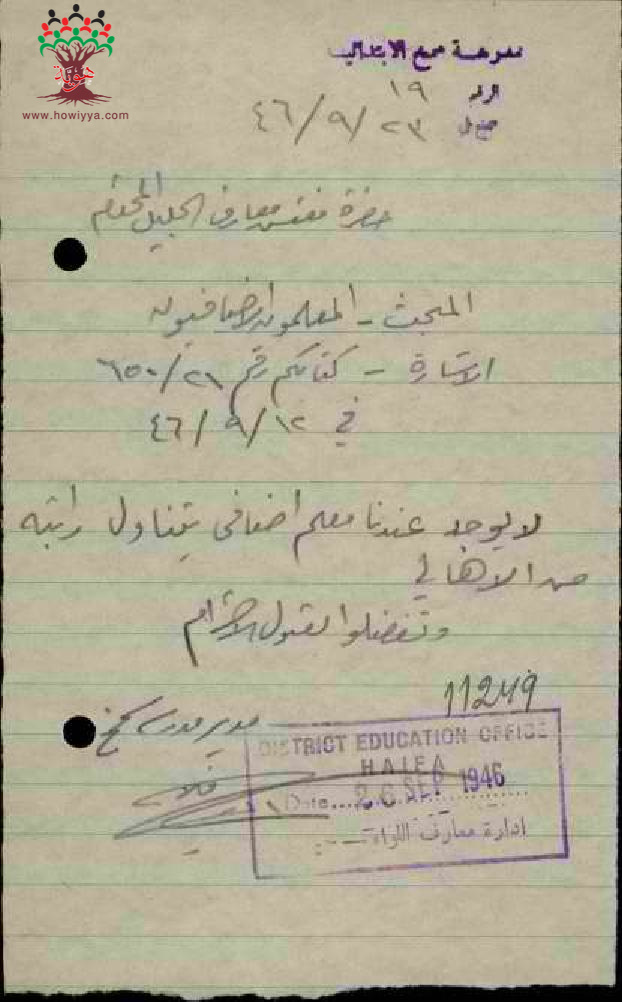 هوية
www.howiyya.com
مدرسة سمخ الابتدائية
الرقم ١٩
سمخ في ٢٣/٩/٤٦
حضرة مفتش معارف الجليل المحترم
المبحث - المعلمون الاضافيون
الاشارة - كتابكم رقم ٦٥٠/٢١
في ١٢/٩/٤٦
لا يوجد عندنا معلم اضافي يتناول راتبه
من الاهالي
وتفضلوا بقبول الاحترام
11249
مدير مدرسة سمخ
DISTRICT EDUCATION OFFICE
HAIFA
Date.... 26 SEP 1946
ادارة معارف اللواء